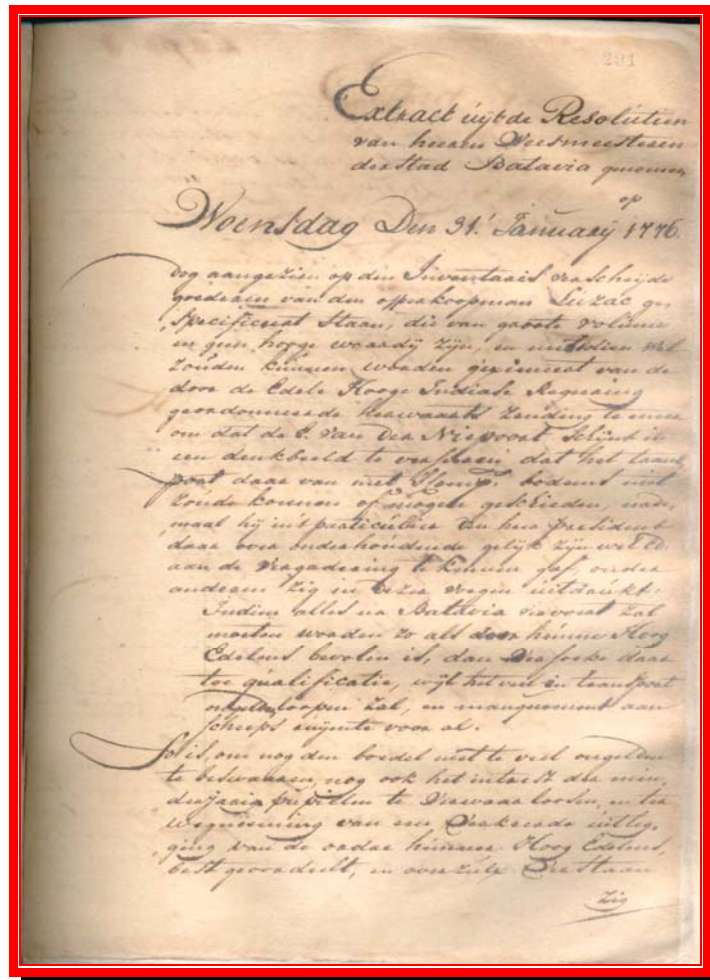 291
Extract uijt de Resolutien
van heeren Weesmeesteren
der Stad Batavia genomen
op
Woensdag Den 31. January 1776.
Dog aangezien op den Inventaris verscheijde
goederen van den opperkoopman Luzac ge,
specificeert staan, die van groote volume
en geen hooge waardij zijn, en mitsdien wel
zouden kunnen worden van de
door de Edele Hooge Indiase Regeering
geordonneerde herwaarts zending te meer
om dat de E. van der Niepoort schijnt in
een denkbeeld te verseeren dat het trans,
port daar van met Comp:s bodems niet
zoude konnen of mogen geschieden, nade,
maal hij in 't particulier den heer president
daar over onderhoudende gelijk zijn wel Ed:
aan de vergadering te kennen gaf, onder
anderen zig in deze woegen uitdrukt.
Indien alles na Batavia vervoert zal
moeten worden zo als door hunne Hoog
Edelens bevolen is, dan versoeke daar
toe qualificatie, wijl het veel in transport
ongelden loopen zal, en manquement aan
scheeps ruijmte voor al.
So is, om nog den boedel niet te veel ongelden
te beswaaren, nog ook het intrest der min,
derjaarige pupillen te verwaarloosen, en ter
wegneeming van een verkeerde uitleg,
ging van de ordre hunner Hoog Edelens,
best geoordeelt, en over zulx verstaan
zig